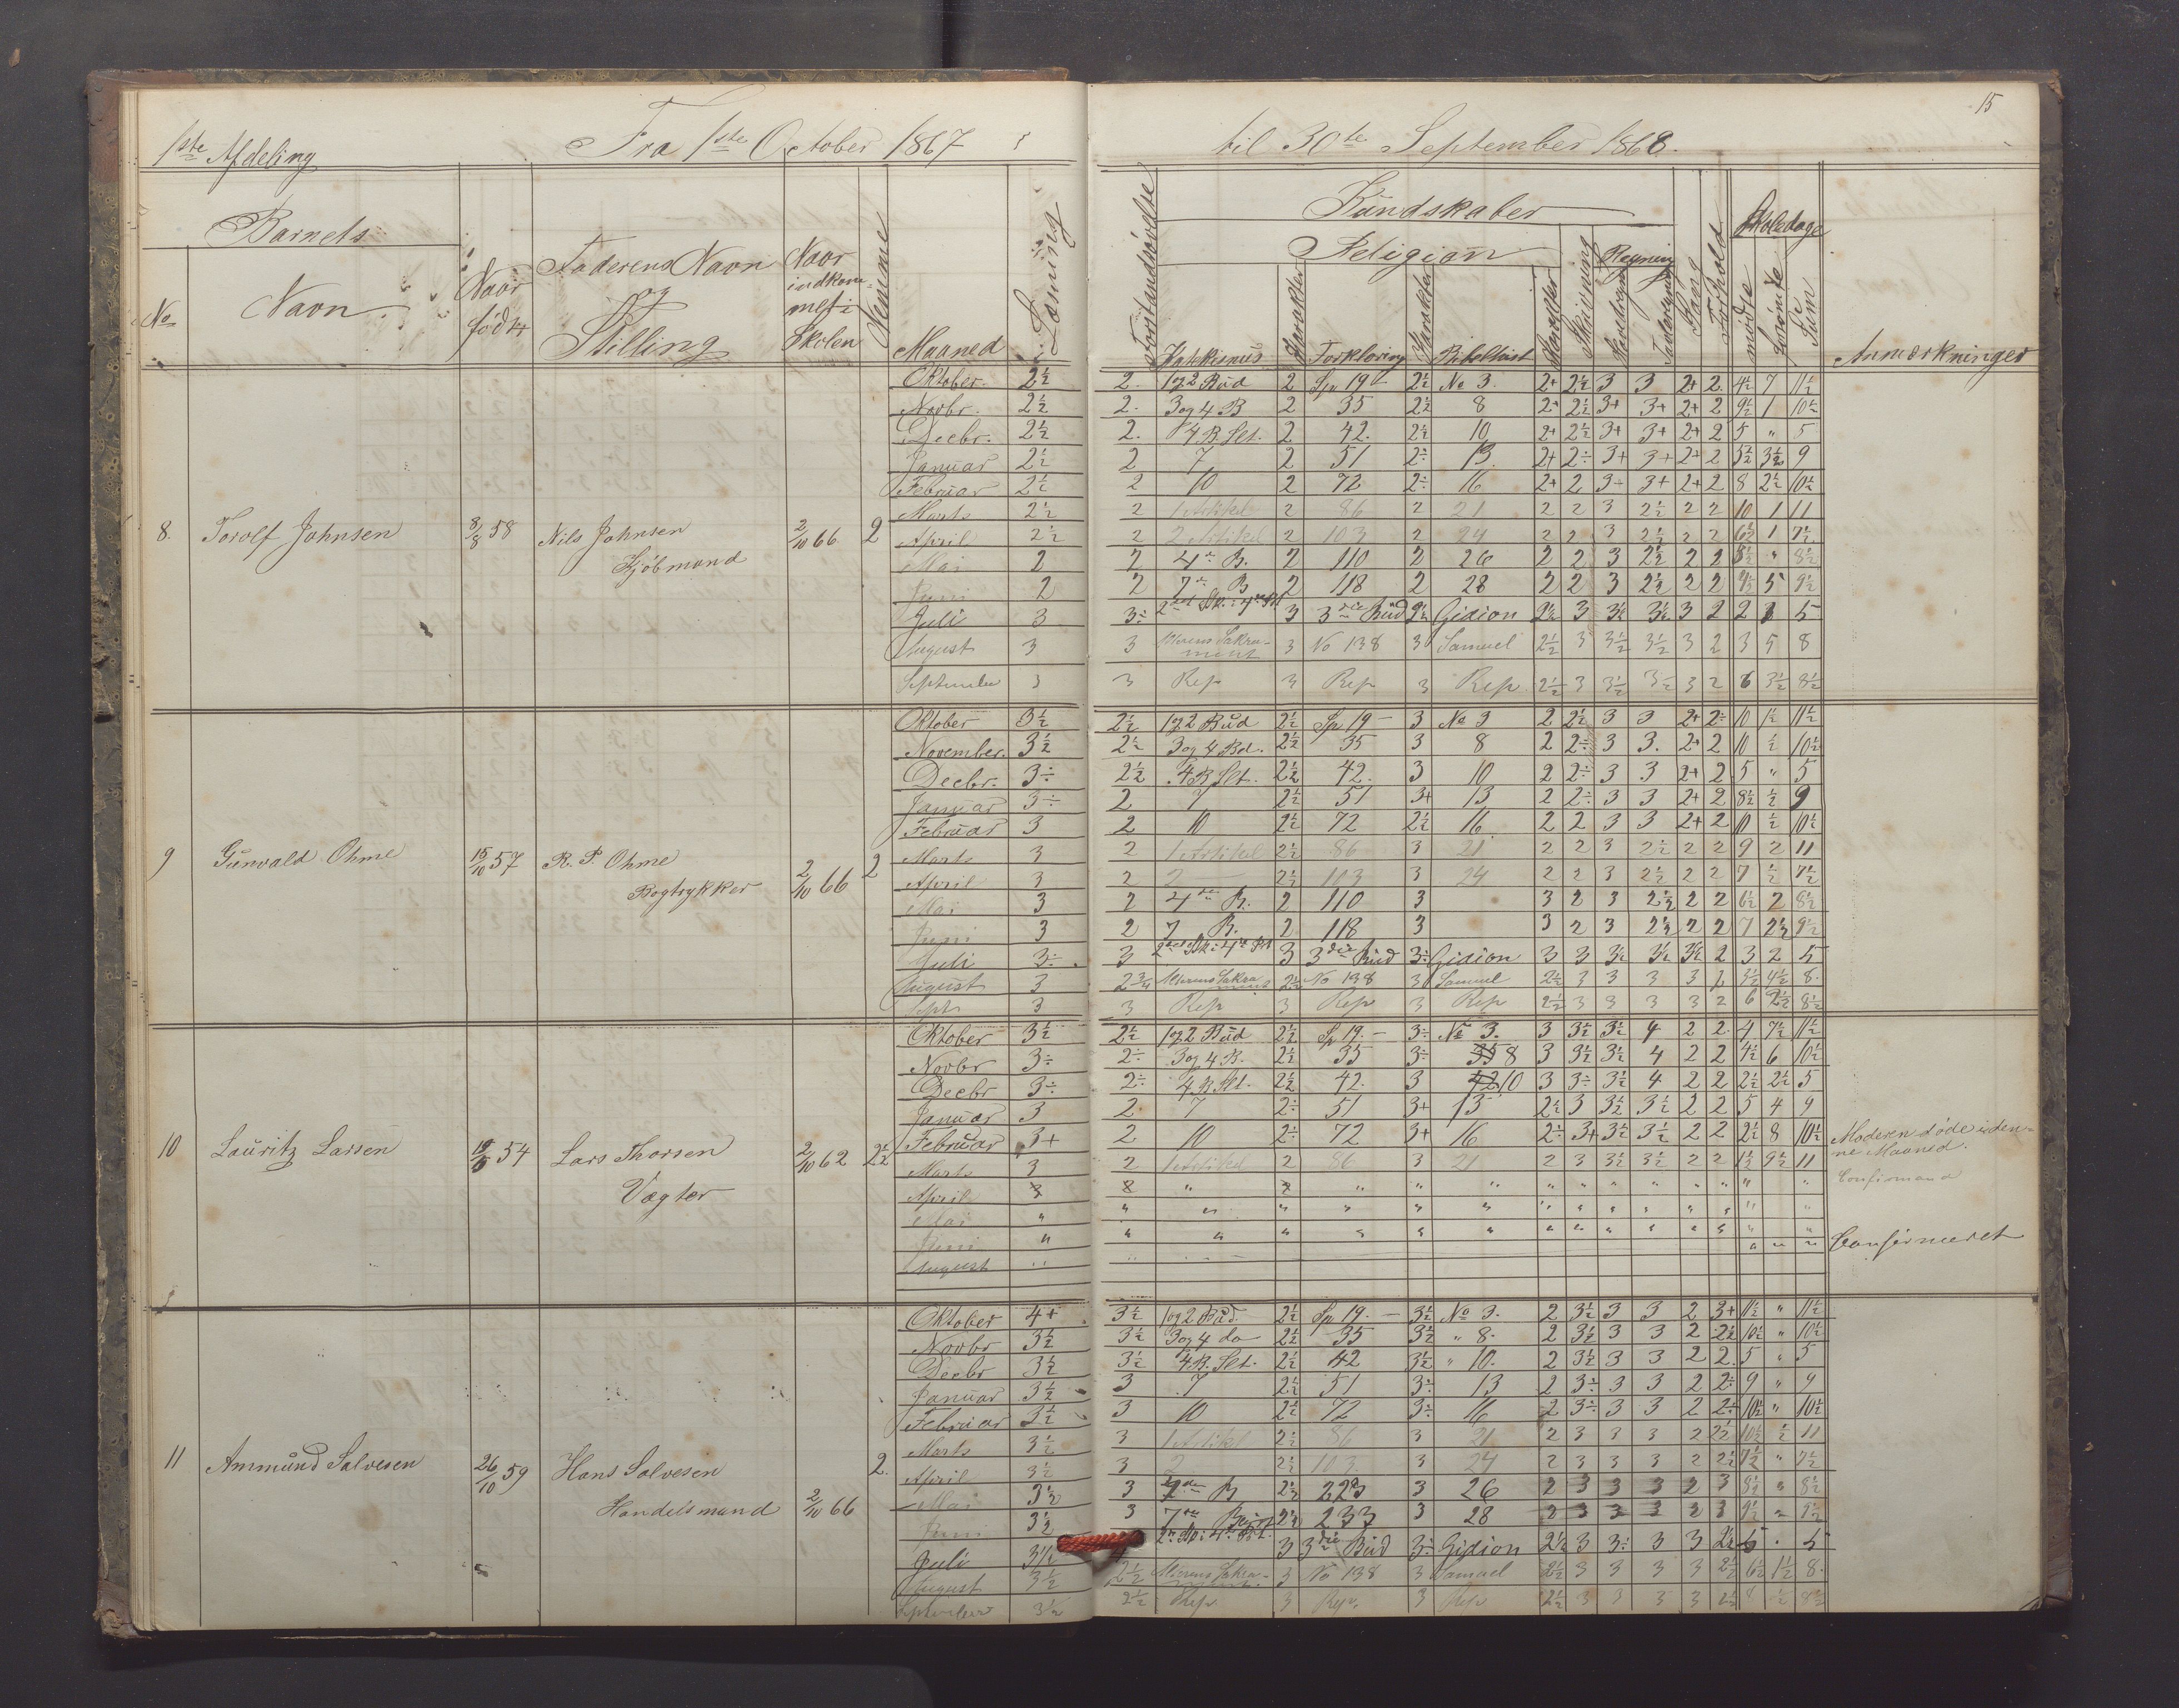 15
1ste Afdeling Fra 1ste October 1867 til 30te September 1868.
Barnets
No Navn Naar født Faderens Navn og Stilling Naar indkom- met i Skolen Nemme Maaned Læsning Forstandsøvelse
Kundskaber
Religion Skrivning Regning Sang Forhold Skoledage
Katekismus Karakter Forklaring Karakter Bibelhist Karakter mødte forsømte Sum Anmærkninger
8. Torolf Johnsen 8/8 58 Nils Johnsen Kjøbmand 2/10 66 2
Oktober. 2½ 2. 1 og 2 Bud 2 Sp 19 – 2½ No 3. 2+ 2½ 3 3 2+ 2. 4½ 7 11½
Novbr. 2½ 2. 3 og 4 B 2 35 2½ 8 2+ 2½ 3+ 3+ 2+ 2 9½ 1 10½
Decbr. 2½ 2. 4 B. Slt. 2 42. 2½ 10 2+ 2½ 3+ 3+ 2+ 2 5 " 5
Januar 2½ 2 7 2 51 2÷ 13 2+ 2÷ 3+ 3+ 2+ 2 5½ 3½ 9
Februar 2½ 2 10 2 72 2÷ 16 2+ 2 3÷ 3+ 2+ 2 8 2½ 10½
Marts 2½ 2 1 Artikel 2 86 2 21 2 2 3 2½ 2 2 10 1 11
April 2½ 2 2 Artikel 2 103 2 24 2 2 3 2½ 2 2 6½ 1 7½
Mai 2 2 4de B. 2 110 2 26 2 2 3 2½ 2 2 8½ " 8½
Juni 2 2 7de B 2 118 2 28 2 2 3 2½ 2 2 4½ 5 9½
Juli 3 3÷ 3 3die Bud 2½ Gidion 2½ 3 3½ 3½ 3 2 2 3 5
August 3 3 Sakra- ment 3 No 138 3 Samuel 2½ 3 3½ 3½ 3 2 3 5 8
September 3 3 Rep 3 Rep 3 Rep 2½ 3 3½ 3½ 3 2 6 3½ 8½
9 Gunvald Ohme 15/10 57 R. P. Ohme Bogtrykker 2/10 66 2
Oktober 3½ 2½ 1 og 2 Bud 2½ Sp 19 – 3 No 3 2 2½ 3 3 2+ 2÷ 10 1½ 11½
November. 3½ 2½ 3 og 4 Bd. 2½ 35 3 8 2 2÷ 3 3. 2+ 2 10 ½ 10½
Decbr. 3÷ 2½ 4 B Slt. 2½ 42. 3 10 2 2÷ 3 3 2+ 2 5 " 5
Januar 3÷ 2 7 2½ 51 3+ 13 2 2÷ 3 3 2+ 2 8½ ½ 9
Februar 3 2 10 2½ 72 2½ 16 2 2 3 3 2+ 2 10 ½ 10½
Marts 3 2 1 Artikel 2½ 86 3 21 2 2 3 2½ 2 2 9 2 11
April 3 2 2 — 2½ 103 3 24 2 2 3 2½ 2 2 7 ½ 7½
Mai 3 2 4de B. 2 110 3 3 2 3 2½ 2 2 6½ 2 8½
Juni 3 2 7 B. 2 118 3 3 2 3 2½ 2 2 7 2½ 9½
Juli 3÷ 3 3 3die Bud 3÷ Gidion 3 3 3½ 3½ 3½ 2 3 2 5
August 3 2¾ Sakra- ment 2½ No 138 3 Samuel 2½ 3 3 3 3 2 3½ 4½ 8
Sept 3 3 Rep 3 Rep 3 Rep 2½ 3 3 3 3 2 6 2½ 8½
10 Lauritz Larsen 54 Lars Thorsen Vægter 2/10 62 2½
Oktober 3½ 2½ 1 og 2 Bud 2½ Sp 19. – 3÷ No 3. 3 3½ 3½ 4 2 2. 4 7½ 11½
Novbr 3÷ 2÷ 3 og 4 B. 2½ 35 3÷ 35 8 3 3½ 3½ 4 2 2 4½ 6 10½
Decbr 3÷ 2÷ 4 B Slt. 2½ 42. 3 42 10 3 3÷ 3½ 4 2 2 2½ 2½ 5
Januar 3 2 7 2÷ 51 3+ 13 2½ 3 3½ 3½ 2 2 5 4 9
Februar 3+ 2 10 2÷ 72 3+ 16 2÷ 3+ 3½ 3½ 2 2 2½ 8 10½ Moderen døde i den- ne Maaned.
Marts 3 2 1 Artikel 2 86 3 21 2 3 3½ 3½ 2 2 1½ 9½ 11
April " " " " " " " " " " " " " Confirmand
Mai " " " " " " " " " " " " " " "
Juni " " " " " " " " " " " " " " " Confirmeret
August " " " "
11 Ammund Salvesen 26/10 59 Hans Salvesen Handelsmand 2/10 66 2.
Oktober 4+ 3½ 1 og 2 Bud. 2½ Sp 19. – 3½ No 3. 2 3½ 3 3 2 3+ 11½ " 11½
Novbr 3½ 3½ 3 og 4 do 2½ 35 3½ " 8. 2 3½ 3 3 2 2½ 10½ " 10½
Decbr 3½ 3½ 4 B. Slt. 2½ 42 3½ " 10. 2 3½ 3 3 2 2. 5 " 5
Januar 3½ 3 7 2½ 51 3÷ 13 2 3÷ 3 3 2 2÷ 9 " 9
Februar 3½ 3 10 2½ 72 3÷ 16 2 3÷ 3 3 2 2½ 10½ " 10½
Marts 3½ 3 1 Artikl 2½ 86 3 21 2 3 3 3 2 2½ 10½ ½ 11
April 3½ 3 2 2½ 103 3 24 2 3 3 3 2 2½ 7½ " 7½
Mai 3½ 3 B 2½ 3 26 2 3 3 3 2 3 8½ " 8½
Juni 3½ 3 7de 2½ 233 3 28 2 3 3 3 2 3 9½ " 9½
Juli 3½ 3 3die Bud 3÷ Gidion 2½ 3 3÷ 3 3 2½ 5 . 5
August 3½ 2½ Sakra- ment. 3 No 138 3 Samuel 2½ 3 3 3 3 2½ 6½ 1½ 8.
September 3½ 2½ Rep. 3 Rep. 3 Rep 2½ 3 3 3 3 2½ 8 ½ 8½